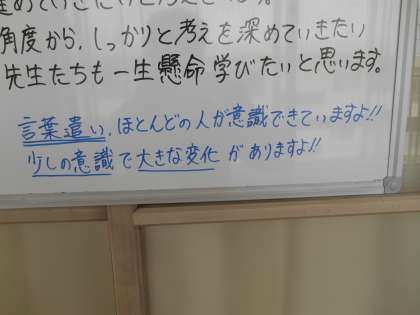 進めていきたいと考えています。
角度から、しっかりと考えを深めていきたい
先生たちも一生懸命学びたいと思います。
言葉遣い、ほとんどの人が意識できていますよ!!
少しの意識で大きな変化がありますよ!!